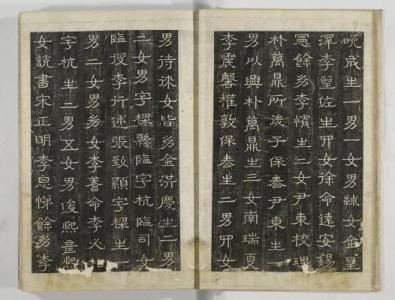 晩歲生一男一女男練女金星
澤李聖佐生四女徐命遠安錫
憲餘多李懏生二女尹東校
朴萬鼎所後子保泰尹東生
男以興朴萬鼎生三女南瑞夏
李震馨權敦保泰生二男四女
男待女皆多金洪慶生二男
二女男字樑縣臨字杭臨司女
臨後李行述張致顯字樑生
男二女男多女李蓍命李必
字杭生二男五女男後熙意熙
女說書宋正明李恩悌餘多李